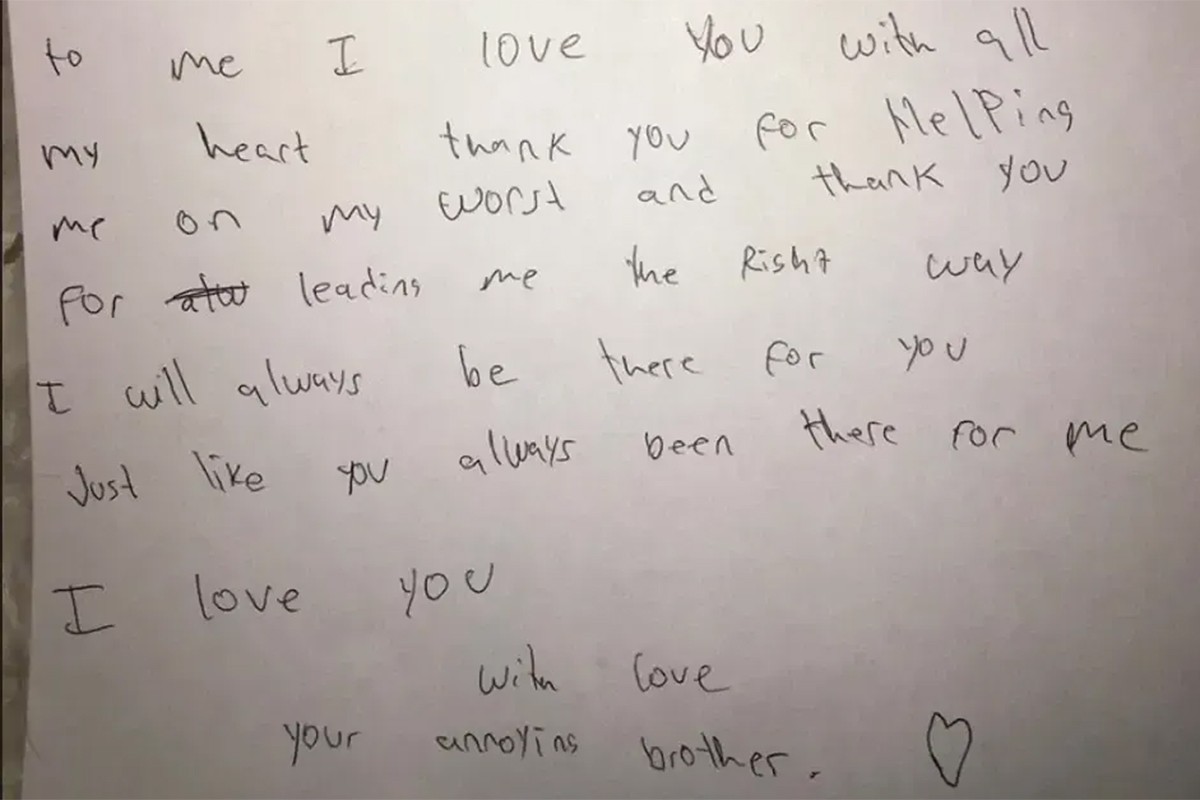 to me I love you with all
my heart thank you for HelPing
me on my worst and thank you
for leading me the Right way
I will always be there for you
Just like you always been there for me
I love you
with love
your annoying brother. ♡